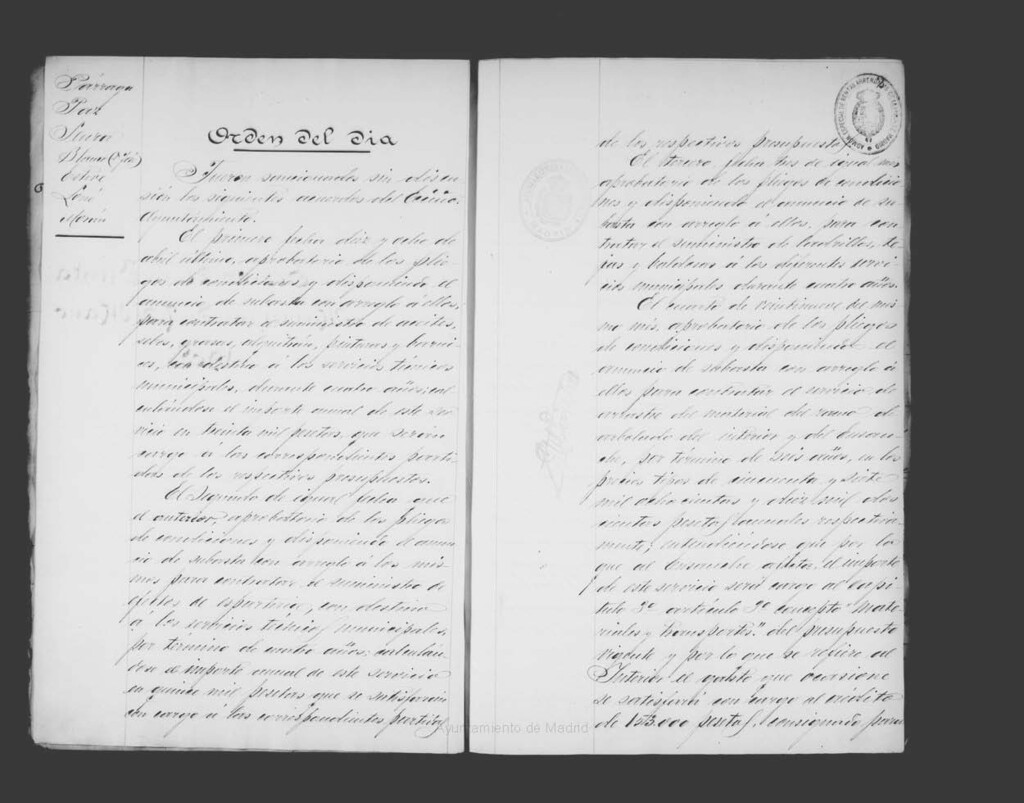 Párraga
Paz
Blanco (D. José)
Morán
Orden del dia
Fueron sancionados sin discu-
sión los siguientes acuerdos del Excmo.
Ayuntamiento.
El primero fecha diez y ocho de
abril último, aprobatorio de los plie-
gos de condiciones y disponiendo el
anuncio de subasta con arreglo á ellos,
para contratar el suministro de aceites,
sebos, grasas, alquitrán, pinturas y barni-
ces, con destino á los servicios técnicos
municipales, durante cuatro años; cal-
culándose el importe anual de este ser-
vicio en treinta mil pesetas, que serán
cargo á las correspondientes parti-
das de los respectivos presupuestos.
El segundo de igual fecha que
el anterior, aprobatorio de los pliegos
de condiciones y disponiendo el anun-
cio de subasta con arreglo á los mis-
mos para contratar el suministro de
efectos de espartería, con destino
á los servicios técnicos municipales,
por término de cuatro años; calculán-
dose el importe anual de este servicio
en quince mil pesetas que se satisfarán
con cargo á las correspondientes partidas
de los respectivos presupuestos.
El tercero fecha tres de igual mes
aprobatorio de los pliegos de condicio-
nes y disponiendo el anuncio de su-
basta con arreglo á ellos, para con-
tratar el suministro de ladrillos, te-
jas y baldosas á los diferentes servi-
cios municipales durante cuatro años.
El cuarto de veintinueve del mis-
mo mes, aprobatorio de los pliegos
de condiciones y disponiendo el
anuncio de subasta con arreglo á
ellos para contratar el servicio de
arrastre del material del ramo de
arbolado del interior y del Ensan-
che, por término de seis años, en los
precios tipos de cincuenta y siete
mil ochocientas y diez mil dos-
cientas pesetas anuales respectiva-
mente; entendiéndose que por lo
que al Ensanche afecta, el importe
de este servicio será cargo al capí-
tulo 3º artículo 3º concepto "Mate-
riales y transportes" del presupuesto
vigente y por lo que se refiere al
Interior el gasto que ocasione
se satisfará con cargo al crédito
de 153.000 pesetas, consignado para
Ayuntamiento de Madrid